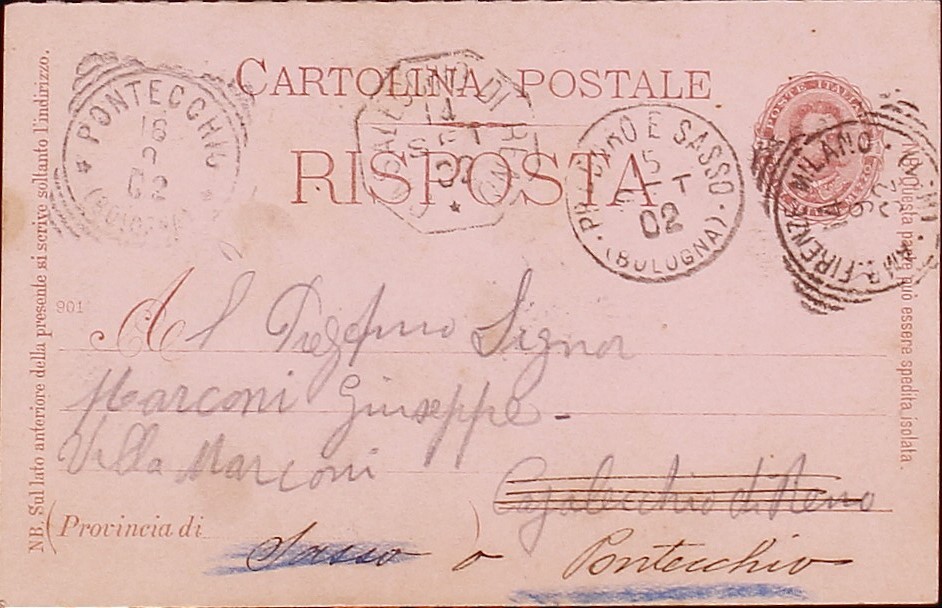 CARTOLINA POSTALE
RISPOSTA
PONTECCHIO
16
9
02
(BOLOGNA)
14
SET
02
PRADURO E SASSO
15
SET
02
(BOLOGNA)
MILANO
FIRENZE
901
Al Pregmo Signor
Marconi Giuseppe -
Villa Marconi
Casalecchio di Reno
(Provincia di )
Sasso o Pontecchio
NB. Sul lato anteriore della presente si scrive soltanto l'indirizzo.
NB. Questa parte può essere spedita isolata.